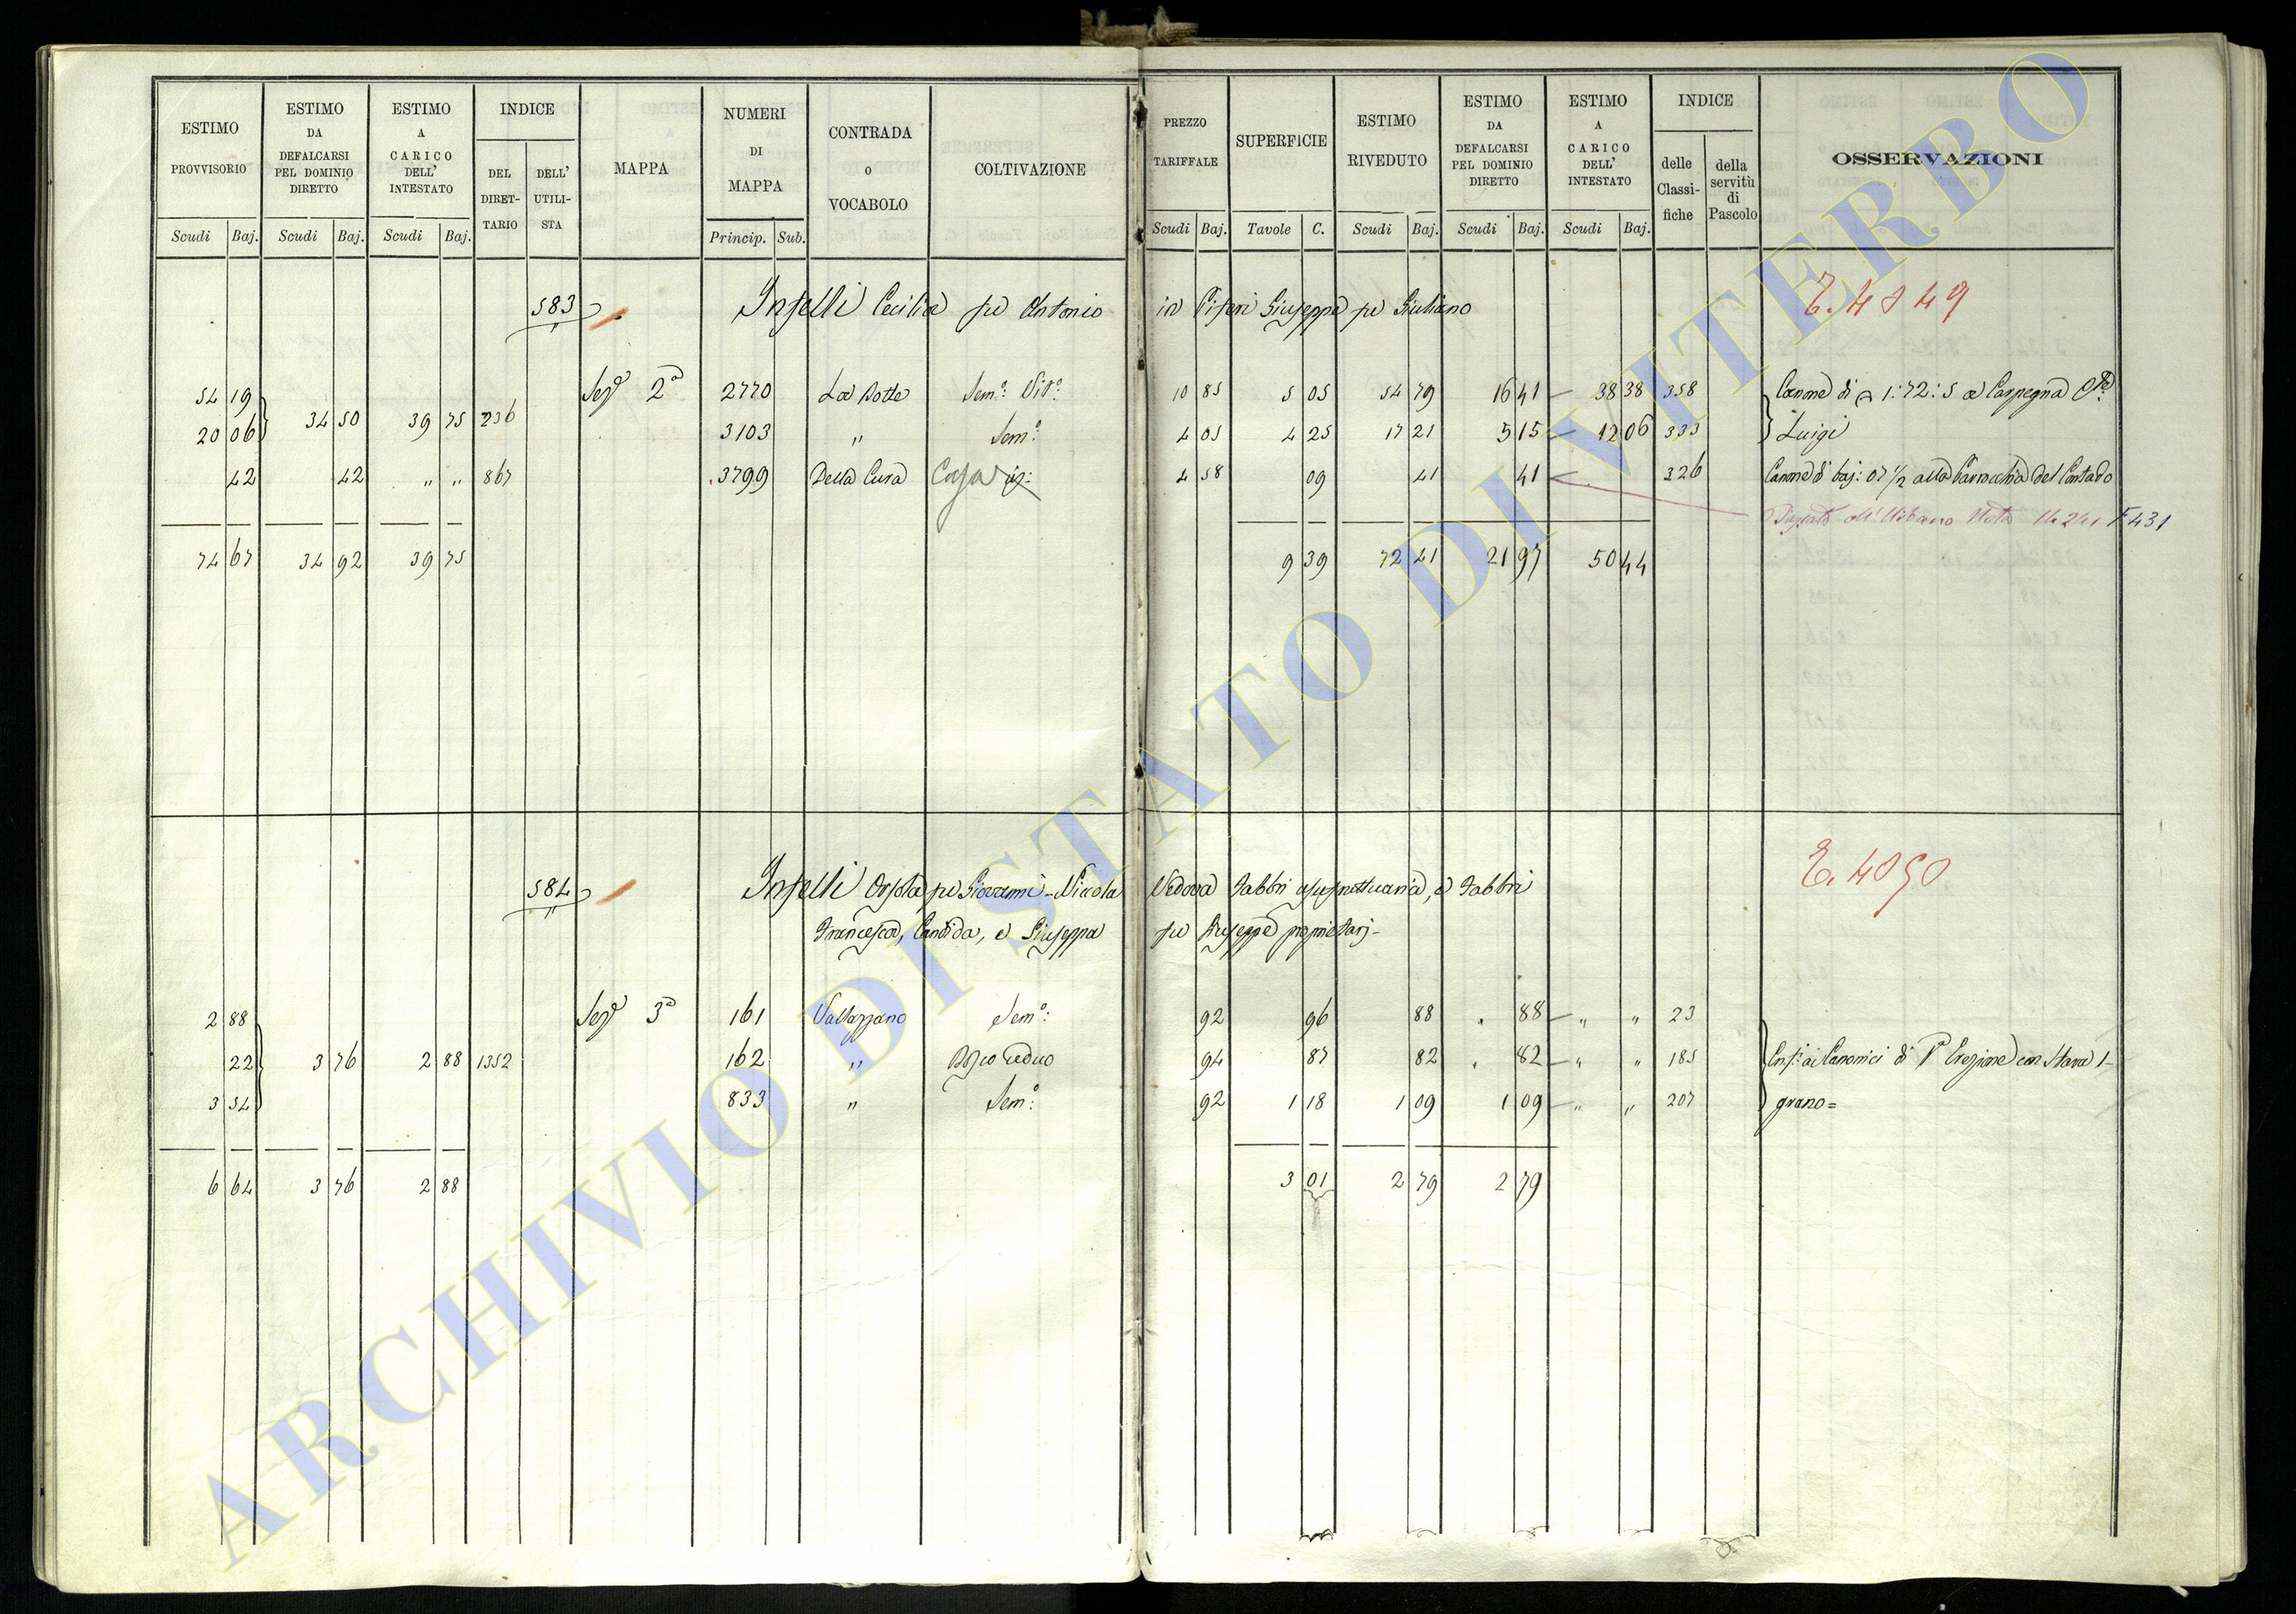 ESTIMO PROVVISORIO | ESTIMO DA DEFALCARSI PEL DOMINIO DIRETTO | ESTIMO A CARICO DELL' INTESTATO | INDICE | MAPPA | NUMERI DI MAPPA | CONTRADA O VOCABOLO | COLTIVAZIONE | PREZZO TARIFFALE | SUPERFICIE | ESTIMO RIVEDUTO | ESTIMO DA DEFALCARSI PEL DOMINIO DIRETTO | ESTIMO A CARICO DELL' INTESTATO | INDICE | OSSERVAZIONI
DEL DIRETTARIO | DELL' UTILISTA | delle Classifiche | della servitù di Pascolo
Scudi Baj. | Scudi Baj. | Scudi Baj. | Princip. Sub. | Scudi Baj. | Tavole C. | Scudi Baj. | Scudi Baj. | Scudi Baj.
583 Cecilia fu Antonio in Giuseppe fu Giuliano
54 19 Sez 2a 2770 Sem: Vit: 10 85 5 05 54 79 16 41 38 38 358 Canone di 1:72:5 a Carpegna
34 50 39 75 236
20 06 3103 " Sem: 4 05 4 25 17 21 5 15 12 06 333 Luigi
42 42 " " 867 3799 Della Cura Casa 4 58 09 41 41 326 Canone di baj: 07 1/2 alla Parrocchia del Contado
all'Urbano F 431
74 67 34 92 39 75 9 39 72 41 21 97 50 44
584 Orsola fu Giovanni Vedova Fabbri usufruttuaria, e Fabbri E. 4050
Francesca, Candida, e Giuseppa fu Giuseppe proprietarj
2 88 Sez 3a 161 Sem: 92 96 88 88 " " 23
22 3 76 2 88 1352 162 " Bosco Ceduo 94 87 82 82 " " 185 ai Canonici di
3 54 833 " Sem: 92 1 18 1 09 1 09 " " 207 grano=
6 64 3 76 2 88 3 01 2 79 2 79
ARCHIVIO DI STATO DI VITERBO